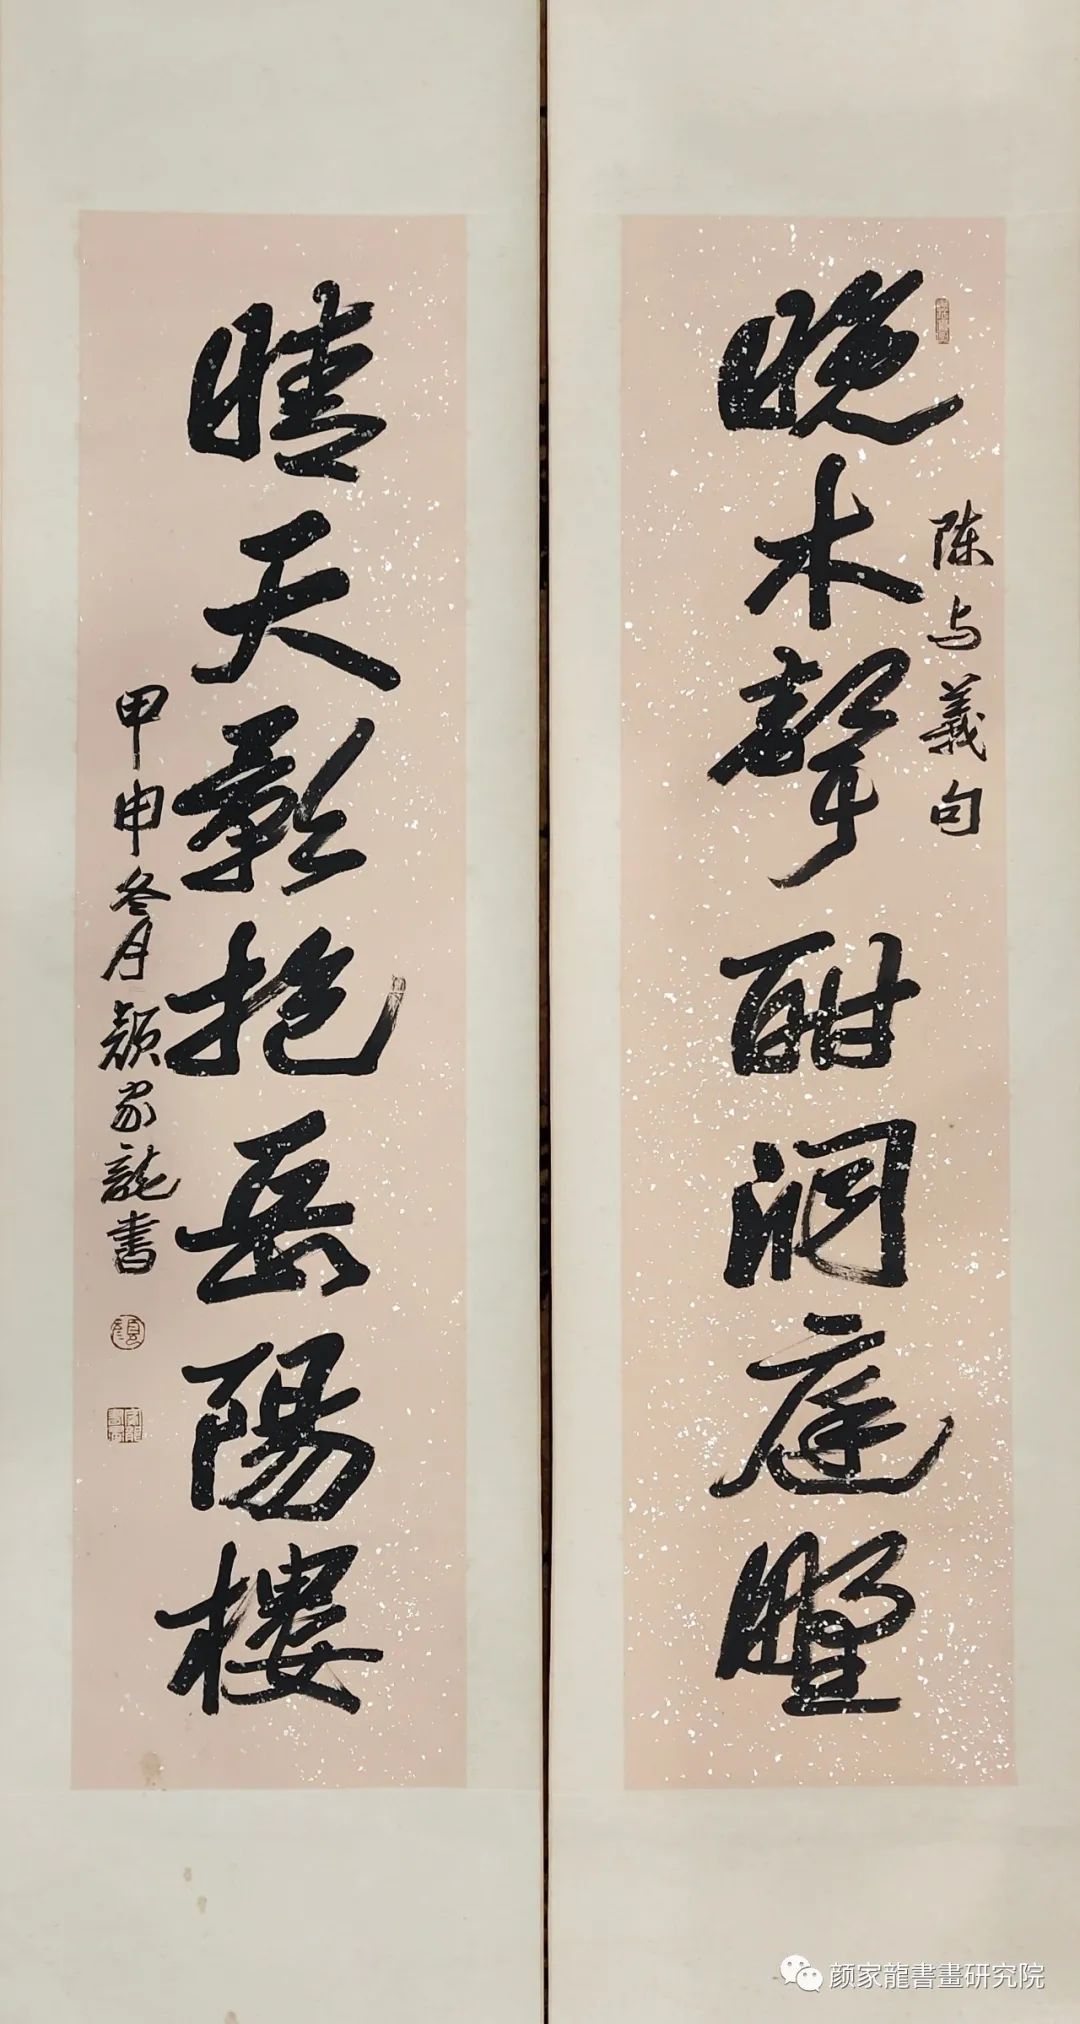 晚木聲酣洞庭野
陈与義句
晴天影抱岳陽樓
甲申冬月顔家龍書
颜家龍書畫研究院